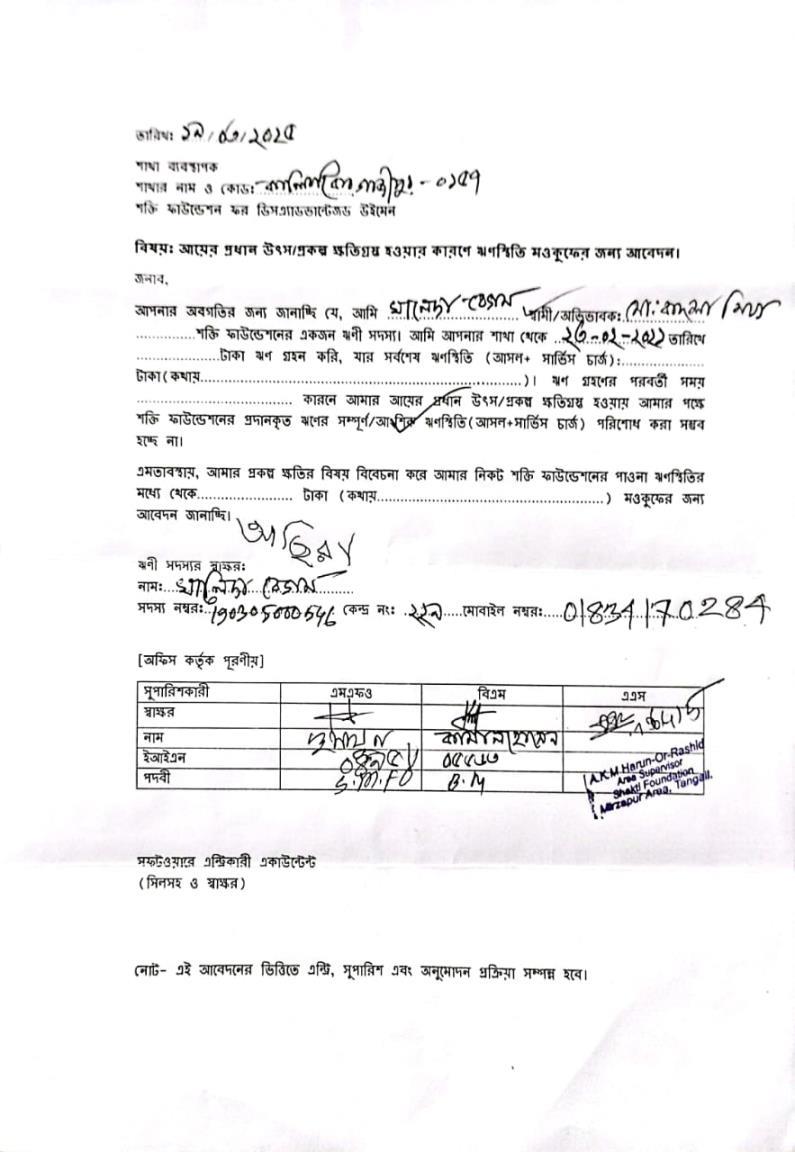 তারিখঃ ১৯/০৩/২০২৫
শাখা ব্যবস্থাপক
শাখার নাম ও কোডঃ কালিয়াকৈর, গাজীপুর - ০১৫৭
শক্তি ফাউন্ডেশন ফর ডিসএ্যাডভান্টেজড উইমেন
বিষয়ঃ আয়ের প্রধান উৎস/প্রকল্প ক্ষতিগ্রস্থ হওয়ার কারণে ঋণস্থিতি মওকুফের জন্য আবেদন।
জনাব,
আপনার অবগতির জন্য জানাচ্ছি যে, আমি খালেদা বেগম স্বামী/অভিভাবকঃ মো: বাদশা মিয়া
................শক্তি ফাউন্ডেশনের একজন ঋণী সদস্য। আমি আপনার শাখা থেকে ..২৩-০২-২০২২ তারিখে
......................টাকা ঋণ গ্রহন করি, যার সর্বশেষ ঋণস্থিতি (আসল+ সার্ভিস চার্জ):......................
টাকা(কথায়......................................................................)। ঋণ গ্রহণের পরবর্তী সময়
........................................ কারনে আমার আয়ের প্রধান উৎস/প্রকল্প ক্ষতিগ্রস্থ হওয়ায় আমার পক্ষে
শক্তি ফাউন্ডেশনের প্রদানকৃত ঋণের সম্পূর্ণ/আংশিক ঋণস্থিতি(আসল+সার্ভিস চার্জ) পরিশোধ করা সম্ভব
হচ্ছে না।
এমতাবস্থায়, আমার প্রকল্প ক্ষতির বিষয় বিবেচনা করে আমার নিকট শক্তি ফাউন্ডেশনের পাওনা ঋণস্থিতির
মধ্যে থেকে........................ টাকা (কথায়.....................................................) মওকুফের জন্য
আবেদন জানাচ্ছি।
আছিয়া
ঋণী সদস্যর স্বাক্ষরঃ
নামঃ খালিদা বেগম
সদস্য নম্বরঃ 190305000546 কেন্দ্র নংঃ ২২৯ মোবাইল নম্বরঃ 01834170284
[অফিস কর্তৃক পূরণীয়]
সুপারিশকারী এমএফও বিএম এএস
স্বাক্ষর
নাম কামাল হোসেন
ইআইএন
পদবী S.M.FO B.M
A.K.M Harun-Or-Rashid
Area Supervisor
Shakti Foundation
Mirzapur Area, Tangail.
সফটওয়ারে এন্ট্রিকারী একাউন্টেন্ট
(সিলসহ ও স্বাক্ষর)
নোট- এই আবেদনের ভিত্তিতে এন্ট্রি, সুপারিশ এবং অনুমোদন প্রক্রিয়া সম্পন্ন হবে।